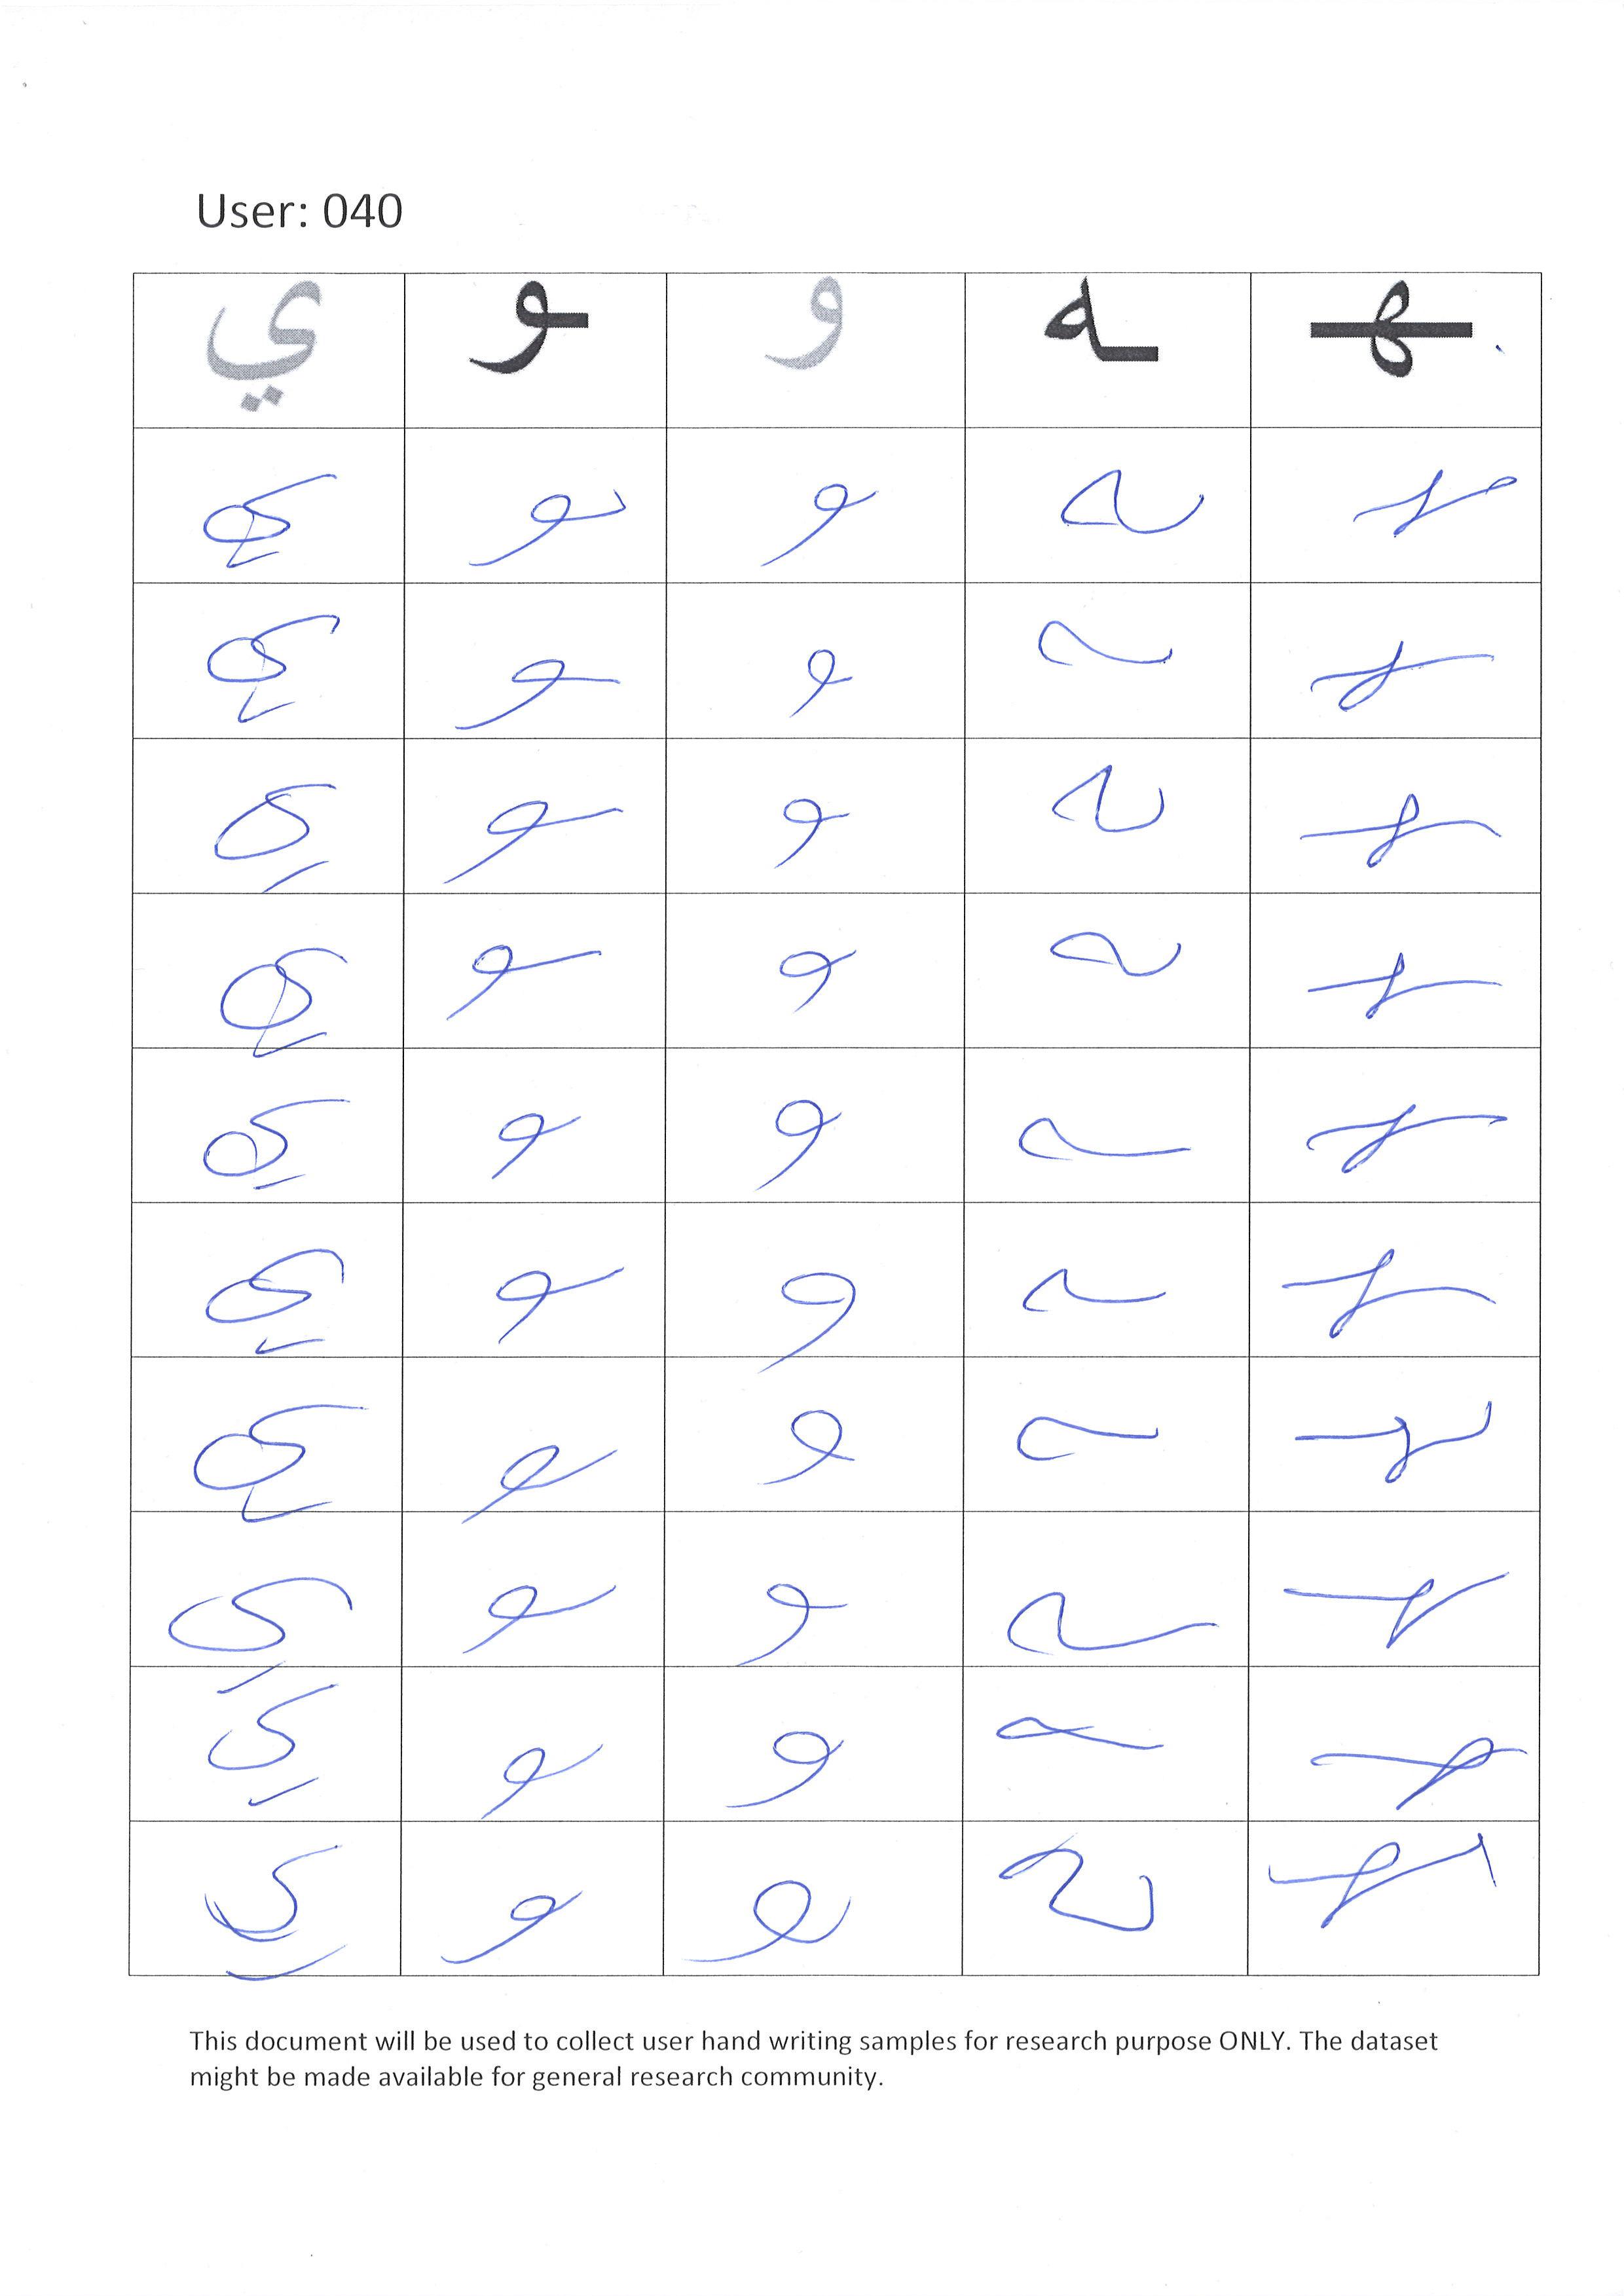 User: 040
ي ـو و ـه ـهـ
ي ـو و ـه ـهـ
ي ـو و ـه ـهـ
ي ـو و ـه ـهـ
ي ـو و ـه ـهـ
ي ـو و ـه ـهـ
ي ـو و ـه ـهـ
ي ـو و ـه ـهـ
ي ـو و ـه ـهـ
ي ـو و ـه ـهـ
ي ـو و ـه ـهـ
This document will be used to collect user hand writing samples for research purpose ONLY. The dataset
might be made available for general research community.